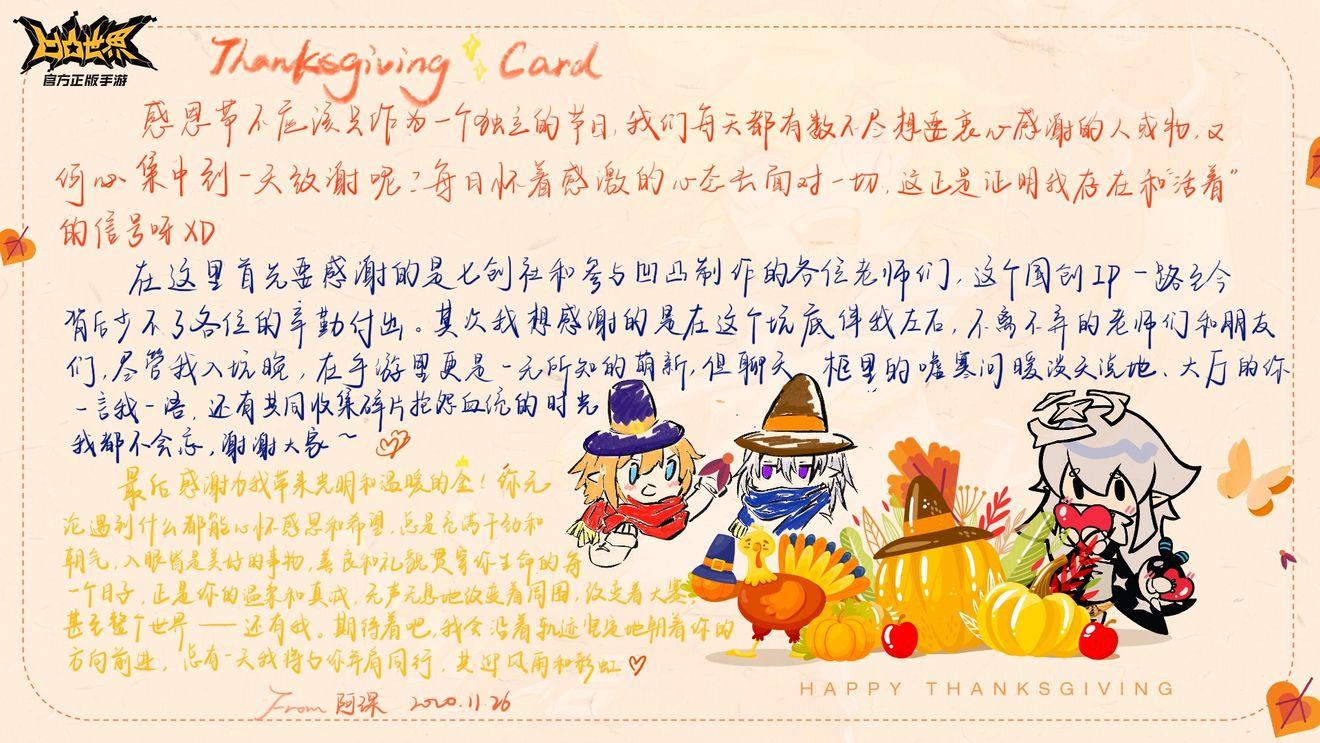 凹凸世界
官方正版手游
Thanksgiving Card
感恩节不应该只作为一个独立的节日,我们每天都有数不尽想要衷心感谢的人或物,又
何必集中到一天致谢呢?每日怀着感激的心态去面对一切,这正是证明我存在和“活着”
的信号呀XD
在这里首先要感谢的是七创社和参与凹凸制作的各位老师们,这个国创IP一路至今
背后少不了各位的辛勤付出。其次我想感谢的是在这个坑底伴我左右,不离不弃的老师们和朋友
们,尽管我入坑晚,在手游里更是一无所知的萌新,但聊天框里的嘘寒问暖谈天说地、大厅的你
一言我一语,还有共同收集碎片抱怨血统的时光
我都不会忘,谢谢大家~
最后感谢为我带来光明和温暖的金!你无
论遇到什么都能心怀感恩和希望,总是充满干劲和
朝气,入眼皆是美好的事物,善良和礼貌贯穿你生命的每
一个日子,正是你的温柔和真诚,无声无息地改变着周围,改变着大赛,
甚至整个世界——还有我。期待着吧,我会沿着轨迹坚定地朝着你的
方向前进,总有一天我将与你并肩同行,共迎风雨和彩虹
From 阿深 2020.11.26
HAPPY THANKSGIVING